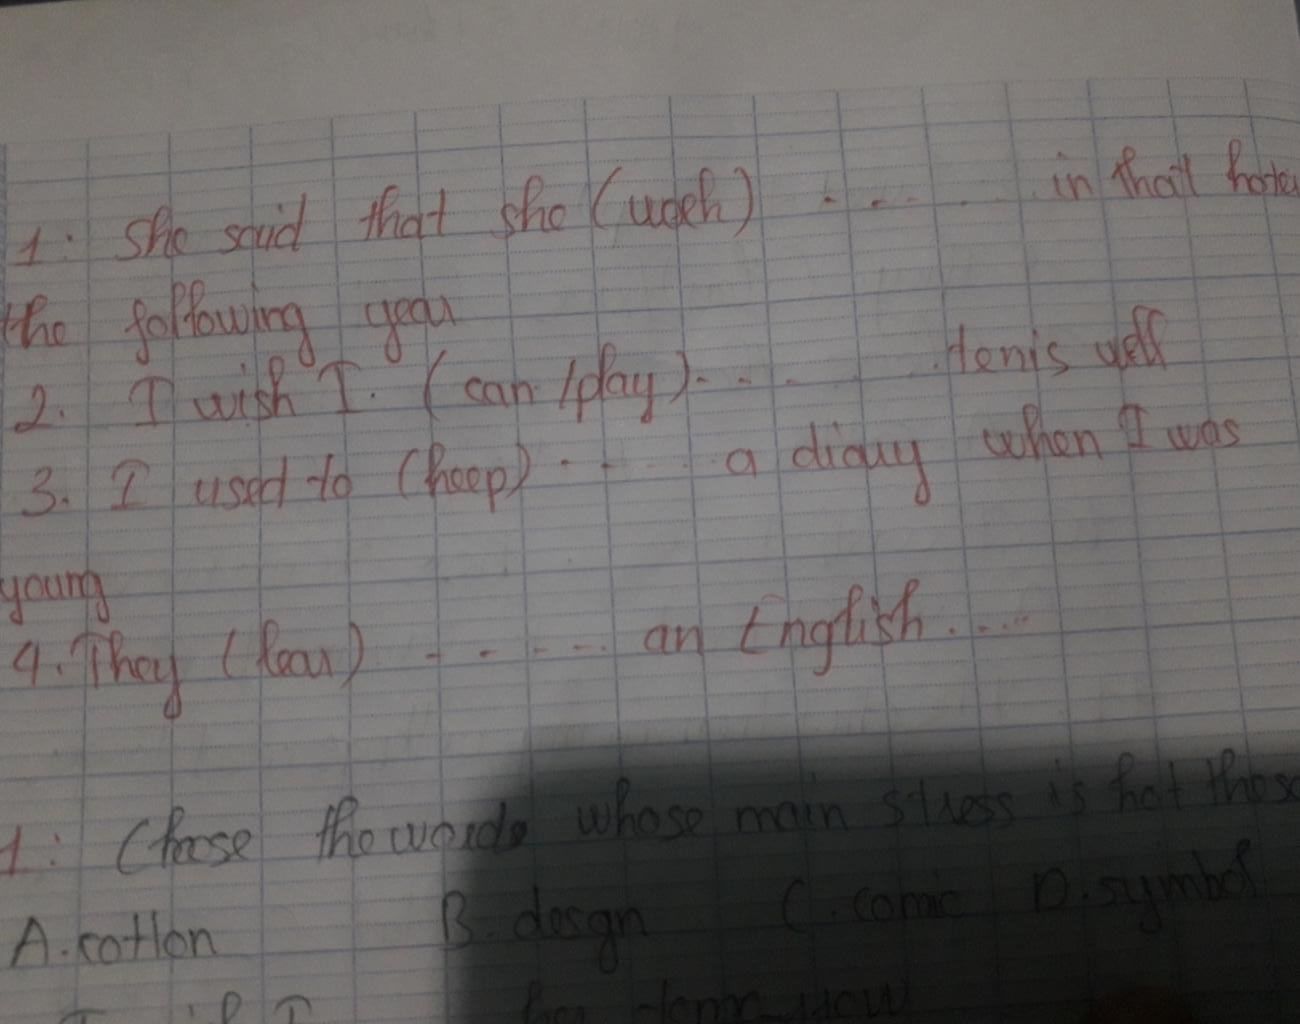 1: She said that she (work) ..... in that hotel
the following year
2. I wish I. (can /play)..... tenis well
3. I used to (keep) ..... a diary when I was
young
4. They (lear) ..... an English ....
1: Choose the words whose main stress is hot those
A. cotton B. desgn C. comic D. symbol